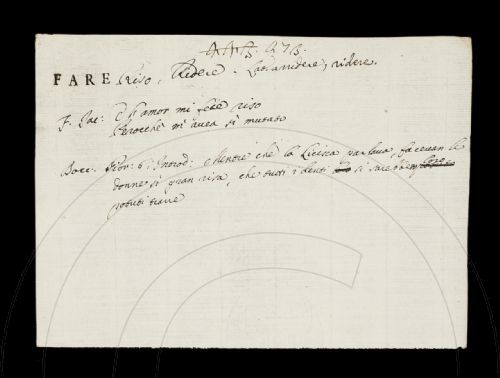 FARE riso, Ridere. Lat. arridere, ridere.
F. Iac: E l'amor mi fece riso
Perocchè m'avea sì mutato
Bocc. Nov: 6: Introd: Mentre che la Licisca parlava, facevan le
donne sì gran risa, che tutti i denti si sarebbero loro
potuti trarre